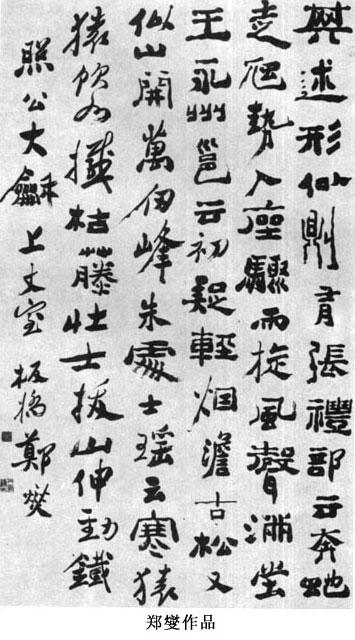 其述形似則有張禮部云奔虵
走虺勢入座驟雨旋風聲滿堂
王永州邕云初疑輕烟澹古松又
似山開萬仞峰朱處士瑶云寒猿
猿飲水撼枯藤壯士拔山伸勁鐵
照公大龢上丈室 板橋鄭燮
郑燮作品